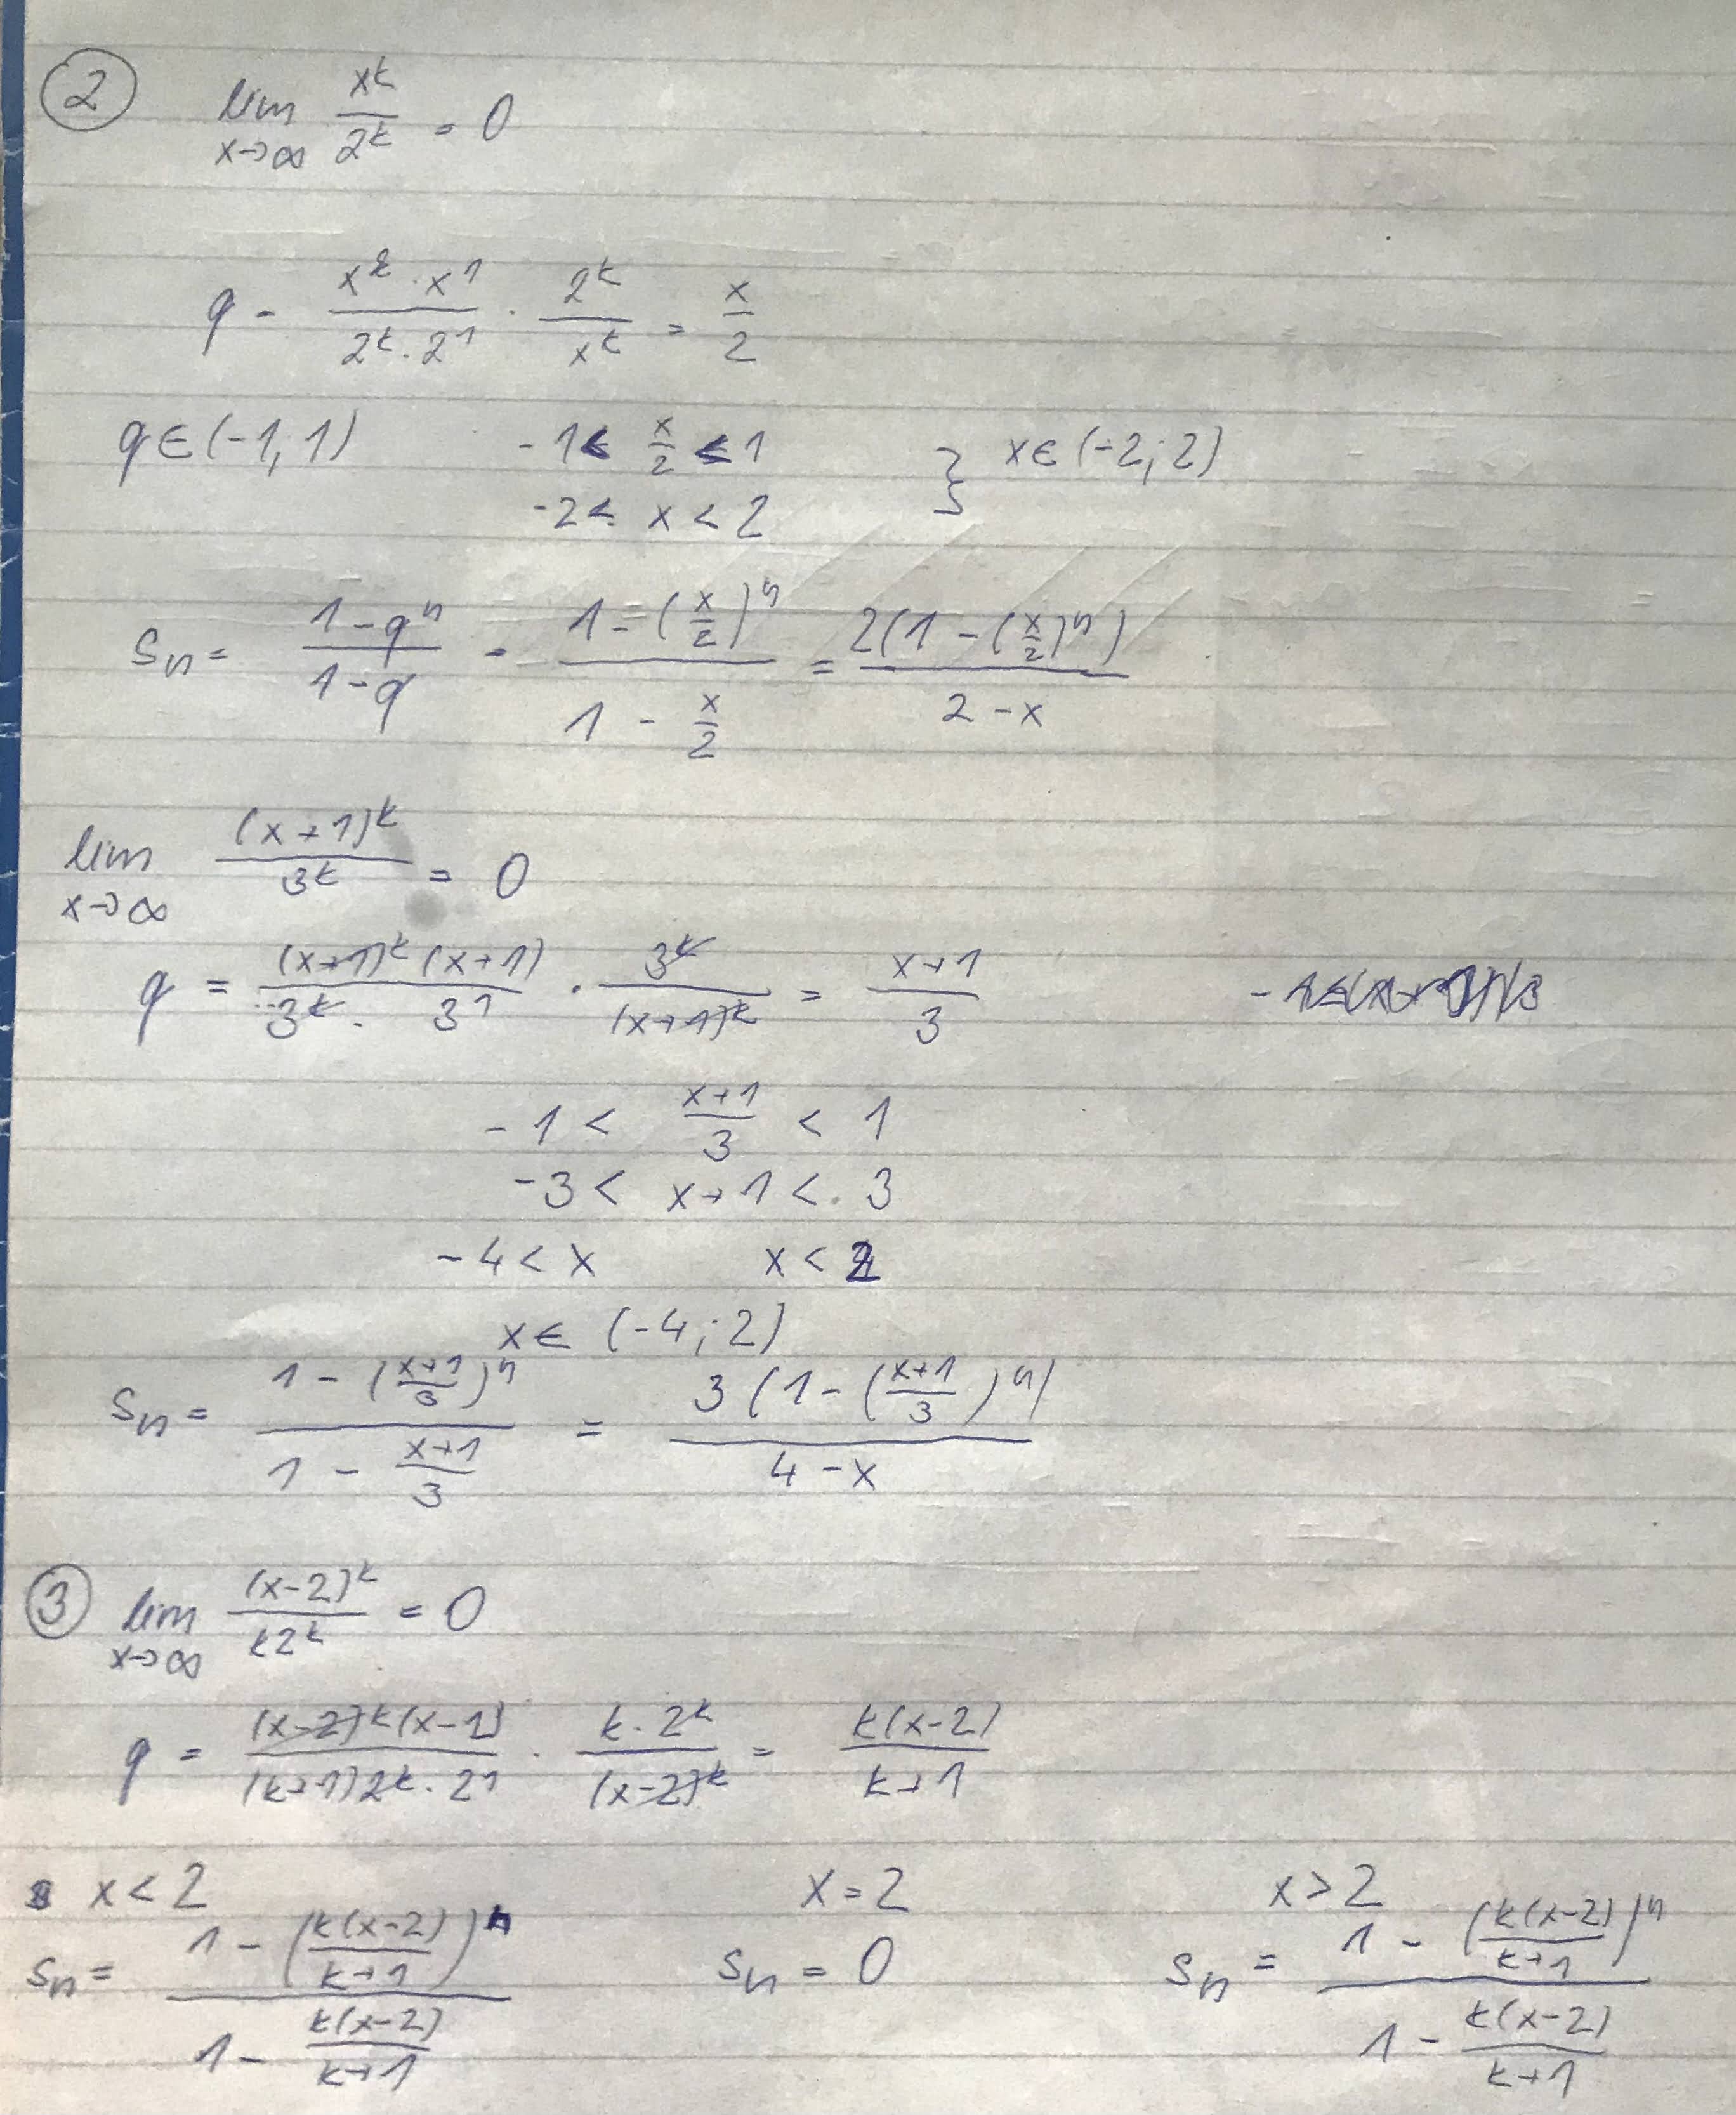 ② lim x→∞ x^k / 2^k = 0
q = (x^k · x^1) / (2^k · 2^1) · 2^k / x^k = x/2
q ∈ (-1, 1) -1 < x/2 < 1 } x ∈ (-2; 2)
-2 < x < 2
Sn = (1 - q^n) / (1 - q) = (1 - (x/2)^n) / (1 - x/2) = 2(1 - (x/2)^n) / (2 - x)
lim x→∞ (x+1)^k / 3^k = 0
q = ((x+1)^k (x+1)) / (3^k · 3^1) · 3^k / (x+1)^k = (x+1)/3
-1 < (x+1)/3 < 1
-3 < x+1 < 3
-4 < x x < 2
x ∈ (-4; 2)
Sn = (1 - ((x+1)/3)^n) / (1 - (x+1)/3) = 3(1 - ((x+1)/3)^n) / (4 - x)
③ lim x→∞ (x-2)^k / (k2^k) = 0
q = ((x-2)^k (x-2)) / ((k+1)2^k · 2^1) · (k · 2^k) / (x-2)^k = k(x-2) / (k+1)
x < 2 x = 2 x > 2
Sn = (1 - (k(x-2)/(k+1))^n) / (1 - k(x-2)/(k+1)) Sn = 0 Sn = (1 - (k(x-2)/(k+1))^n) / (1 - k(x-2)/(k+1))